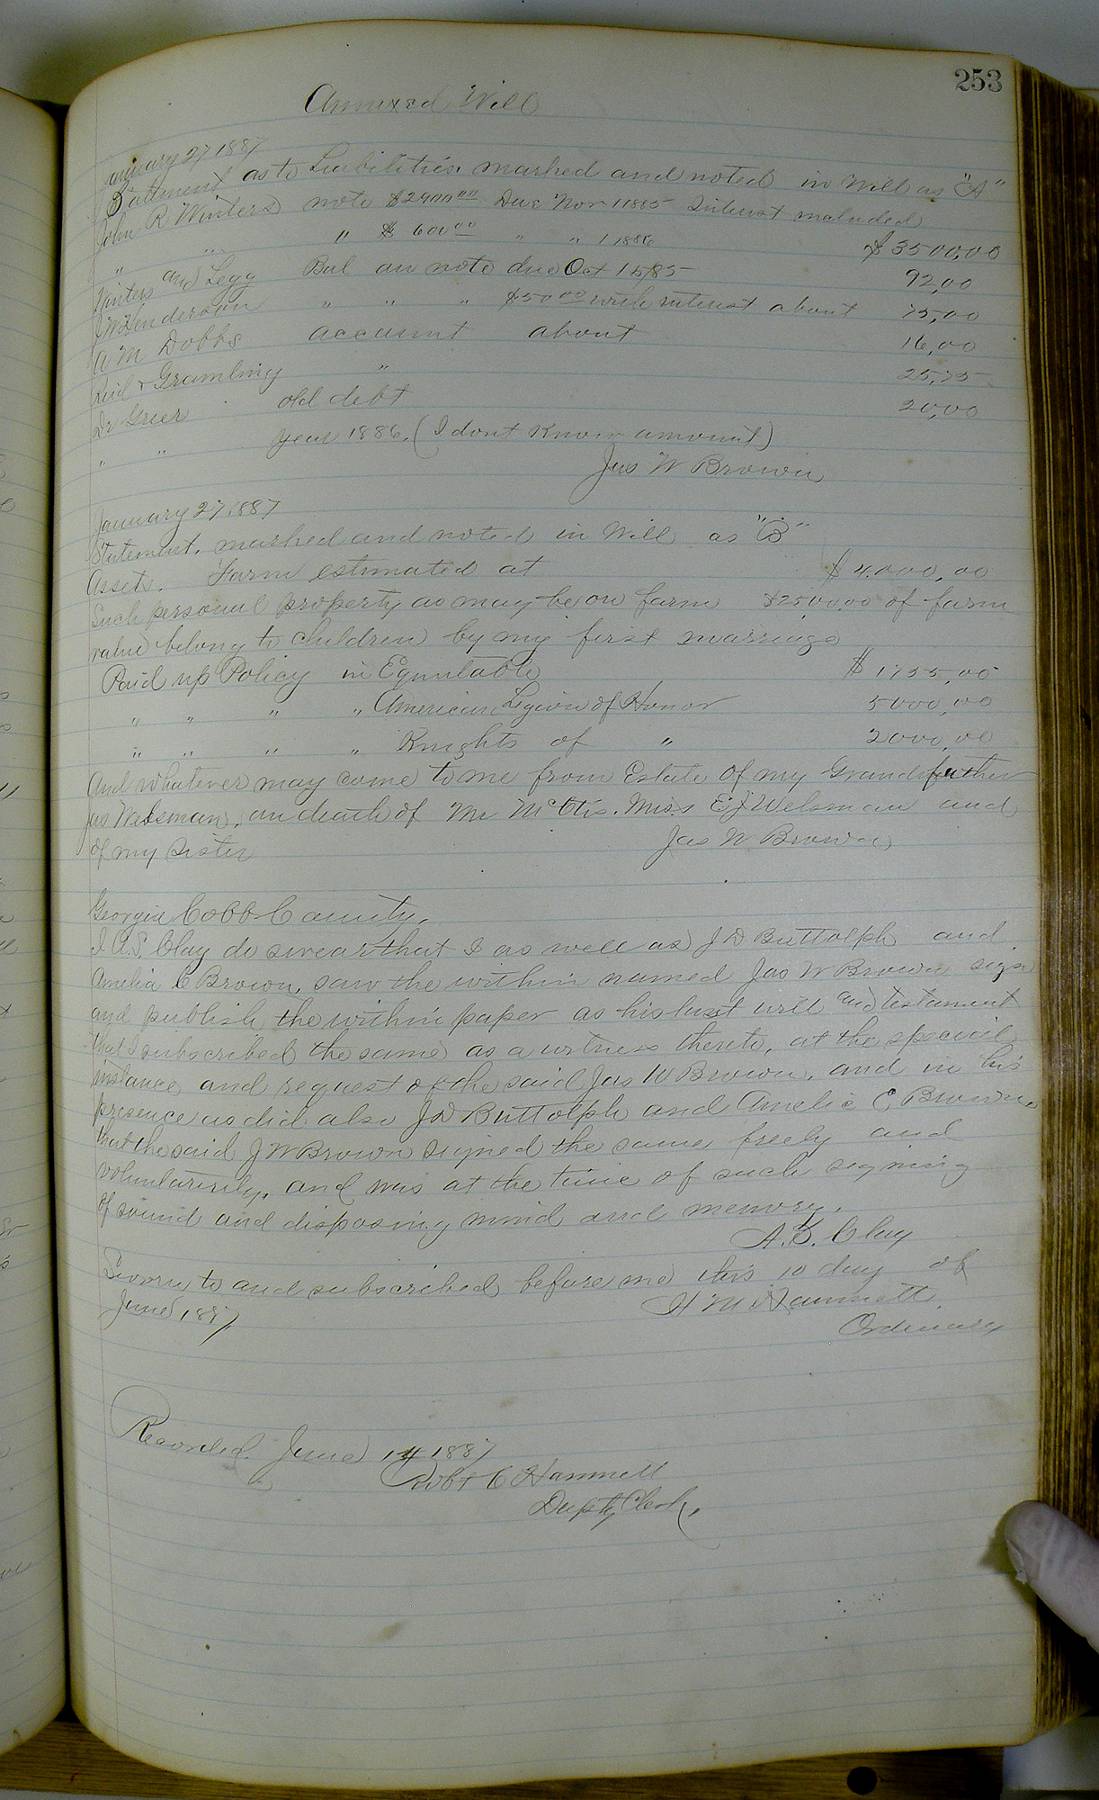 253
Annexed Will
January 27 1887
Statement as to Liabilities. marked and noted in Will as "A"
John R Winters note $2900.00 Due Nor 1 1885 Interest included
" " " $ 600.00 " " 1 1886 $3500,00
Winters and Legg Bal on note due Oct 15/85 92,00
J W Henderson " " " $50.00 with interest about 75,00
A M Dobbs account about 16,00
Reid & Gramling " 25,75
Dr Grier old debt 20,00
" " year 1886. (I dont know amount)
Jas W Brown
January 27, 1887
Statement. marked and noted in Will as "B"
Assets. Farm estimated at $4,000,00
Such personal property as may be on farm $2500,00 of farm
value belong to children by my first marriage
Paid up Policy in Equitable $1755,00
" " " " American Legion of Honor 5000,00
" " " " Knights of " 2000,00
And whatever may come to me from Estate of my Grandfather
Jas Welsman, on death of Mr Miss E J Welsman and
of my Sister Jas W Brown
Georgia Cobb County.
I A.S. Clay do swear that I as well as J D Buttolph and
Amelia E Brown, saw the within named Jas W Brown sign
and publish the within paper as his last will and testament
that I subscribed the same as a witness thereto, at the special
instance and request of the said Jas W Brown, and in his
presence as did also J D Buttolph and Amelia E Brown,
that the said J W Brown signed the same freely and
voluntarily, and was at the time of such signing
of sound and disposing mind and memory.
A. S. Clay
Sworn to and subscribed before me this 10 day of
June 1887 H M Hammett
Ordinary
Recorded June 14 1887
Robt C Hammett
Dupty Clerk.